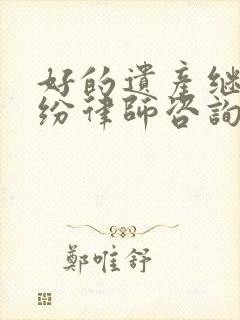 好的遺產继
纷律師咨詢
鄭唯舒